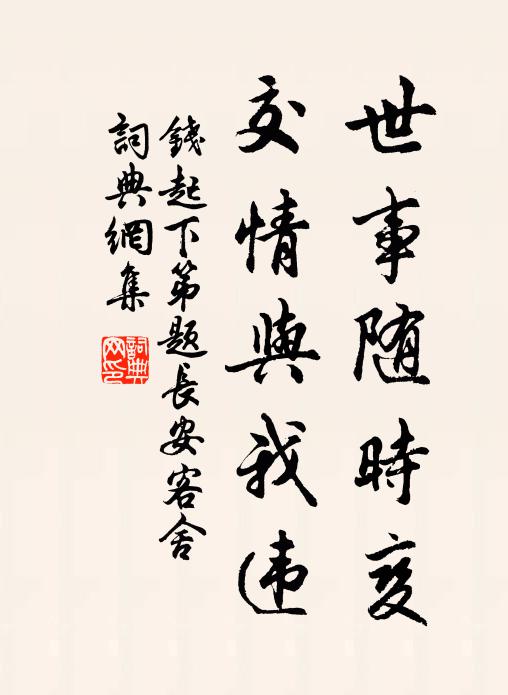 世事随時变
交情與我违
錢起下第題長安客舍
詞典網集
詞典網印